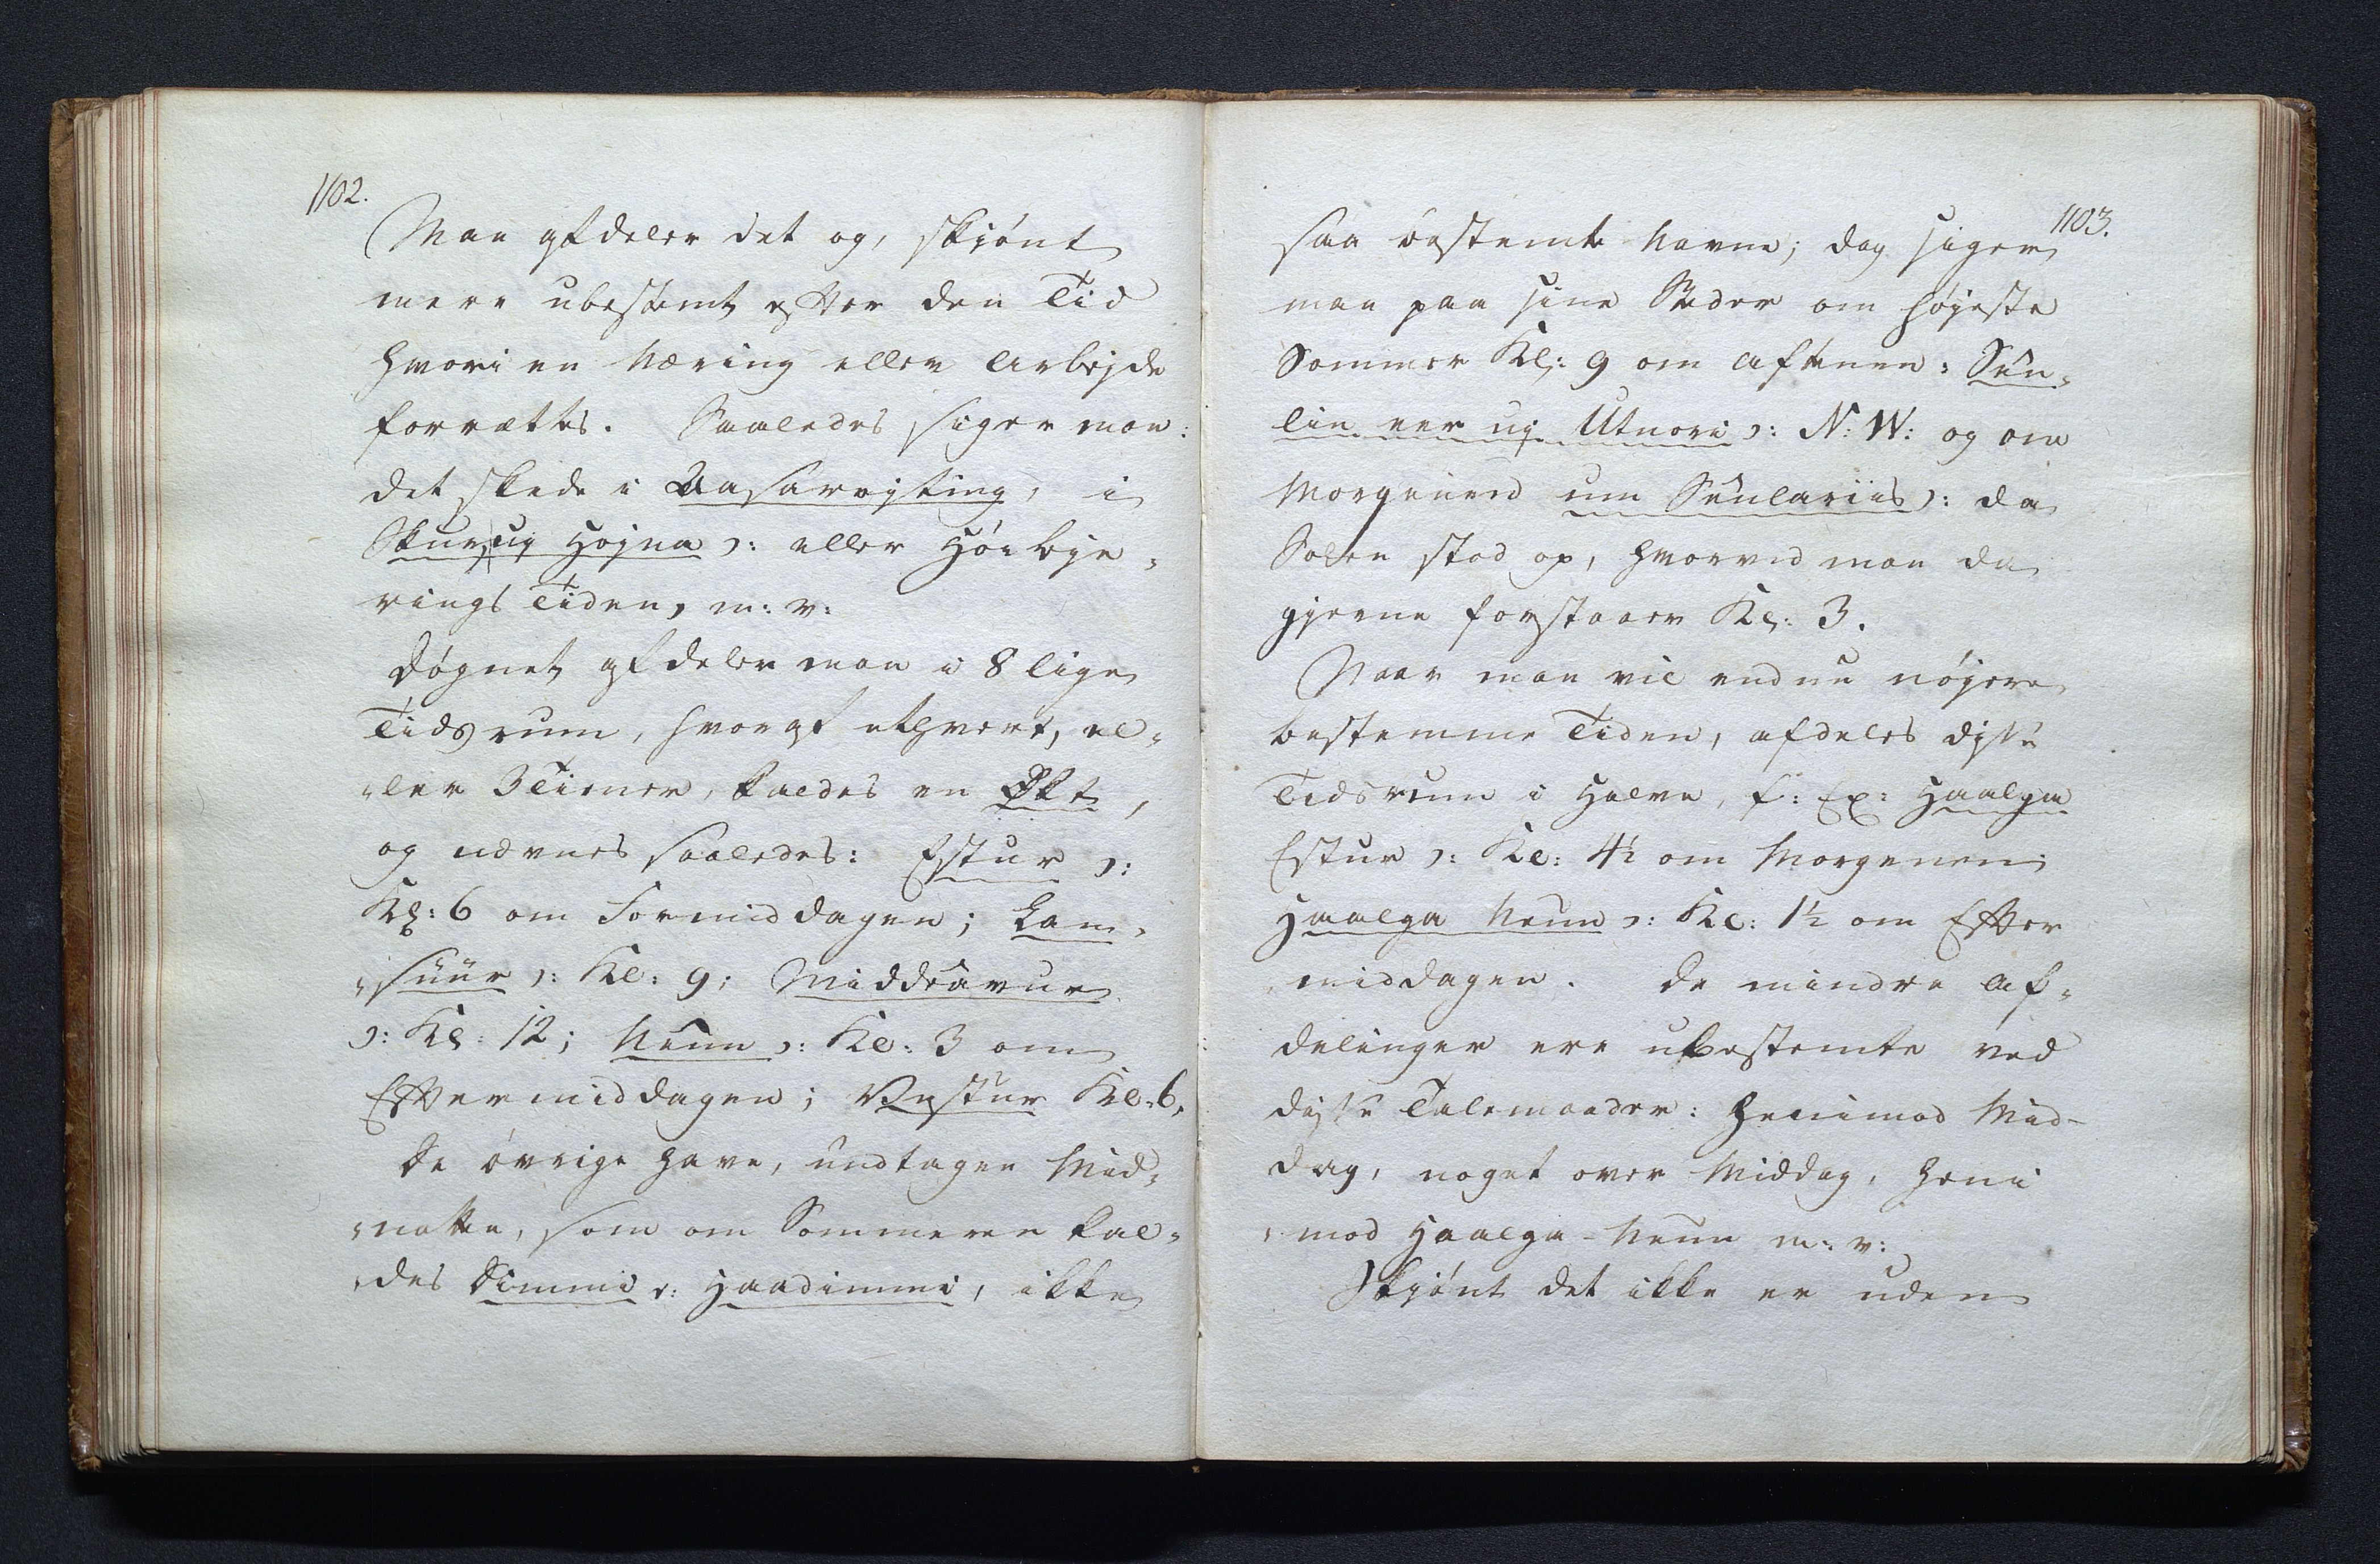 1102.
Man afdeler det og, skjönt
mere ubestemt efter den Tid
hvori en Næring eller Arbejde
forrættes. Saaledes siger man:
det skede i Aasarrojting, i
Skurj ug Hojna ɔ: eller Höebje„
rings Tiden, m: v:
Døgnet afdeler man i 8 lige
Tidsrum, hvoraf ethvert, el„
„ler 3 Timer, kaldes en Økt,
og nævnes saaledes: Estur ɔ:
Kl: 6 om Formiddagen; Jam„
„süür ɔ: Kl: 9; Middeavur
ɔ: Kl: 12; Neun ɔ: Kl: 3 om
Eftermiddagen; Vestur Kl: 6.
De övrige have, undtagen Mid„
„natten, som om Sommeren kal„
„des Dimmi ɔ: Haadimmi, ikke
1103.
saa bestemte Navne; dog siger
man paa sine Steder om höjeste
Sommer Kl: 9 om Aftenen: Seu„
lin eer uj Utnori ɔ: N: W: og om
Morgenen um Seulariis ɔ: da
Solen stod op, hvorved man da
gjerne forstaaer Kl: 3.
Naar man vil endnu nöjere
bestemme Tiden, afdeles disse
Tidsrum i Halve, f: Ex: Haalga
Estur ɔ: Kl: 4½ om Morgenen;
Haalga Neun ɔ: Kl: 1½ om Efter
„middagen. De mindre Af„
delinger ere ubestemte ved
disse Talemaader: henimod Mid-
dag, noget over Middag, heni
„mod Haalga-Neun m: v:
Skjönt det ikke er uden